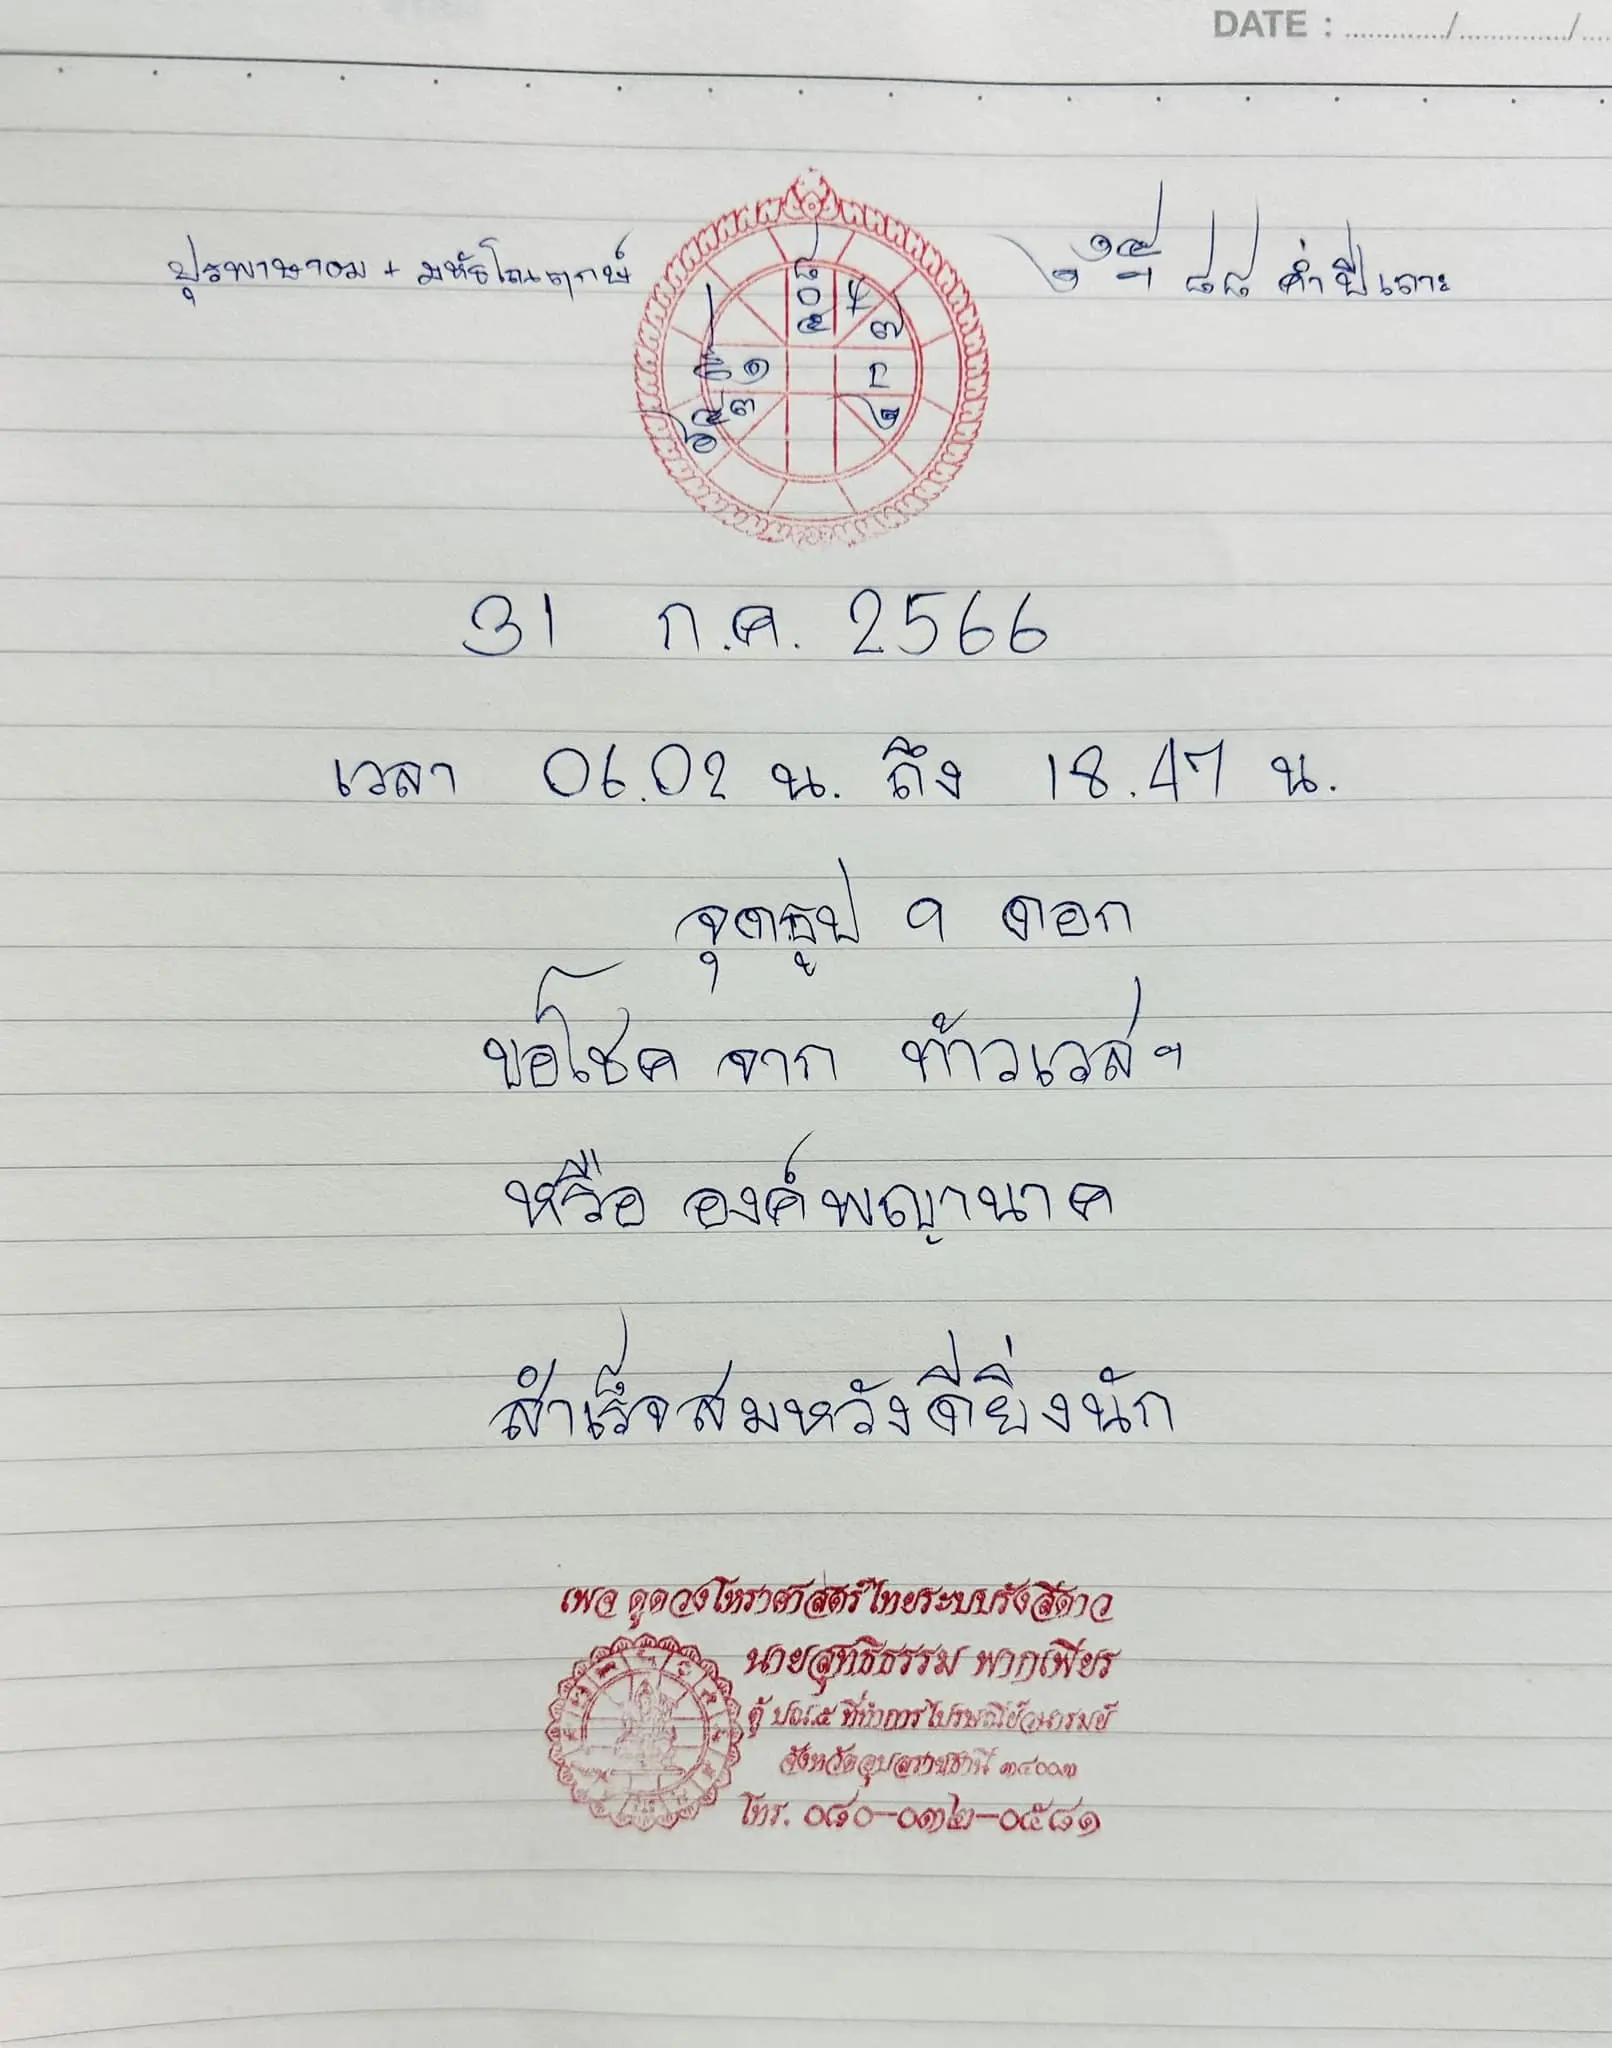 DATE : ............/............/....
ปุรพาษาฒ + มหัธโณฤกษ์
๒ ๑๕ ๘๘ ค่ำ ปีเถาะ
๘
๐
๕
๗
๑
๒
๓
๖ ๔
31 ก.ค. 2566
เวลา 06.02 น. ถึง 18.47 น.
จุดธูป 9 ดอก
ขอโชค จาก ท้าวเวสฯ
หรือ องค์พญานาค
สำเร็จสมหวังดียิ่งนัก
เพจ ดูดวงโหราศาสตร์ไทยระบบรังสีดาว
นายสุทธิธรรม พากเพียร
ตู้ ปณ.๕ ที่ทำการไปรษณีย์วนารมย์
จังหวัดอุบลราชธานี ๓๔๐๐๓
โทร. ๐๘๐-๐๓๒-๐๕๘๑